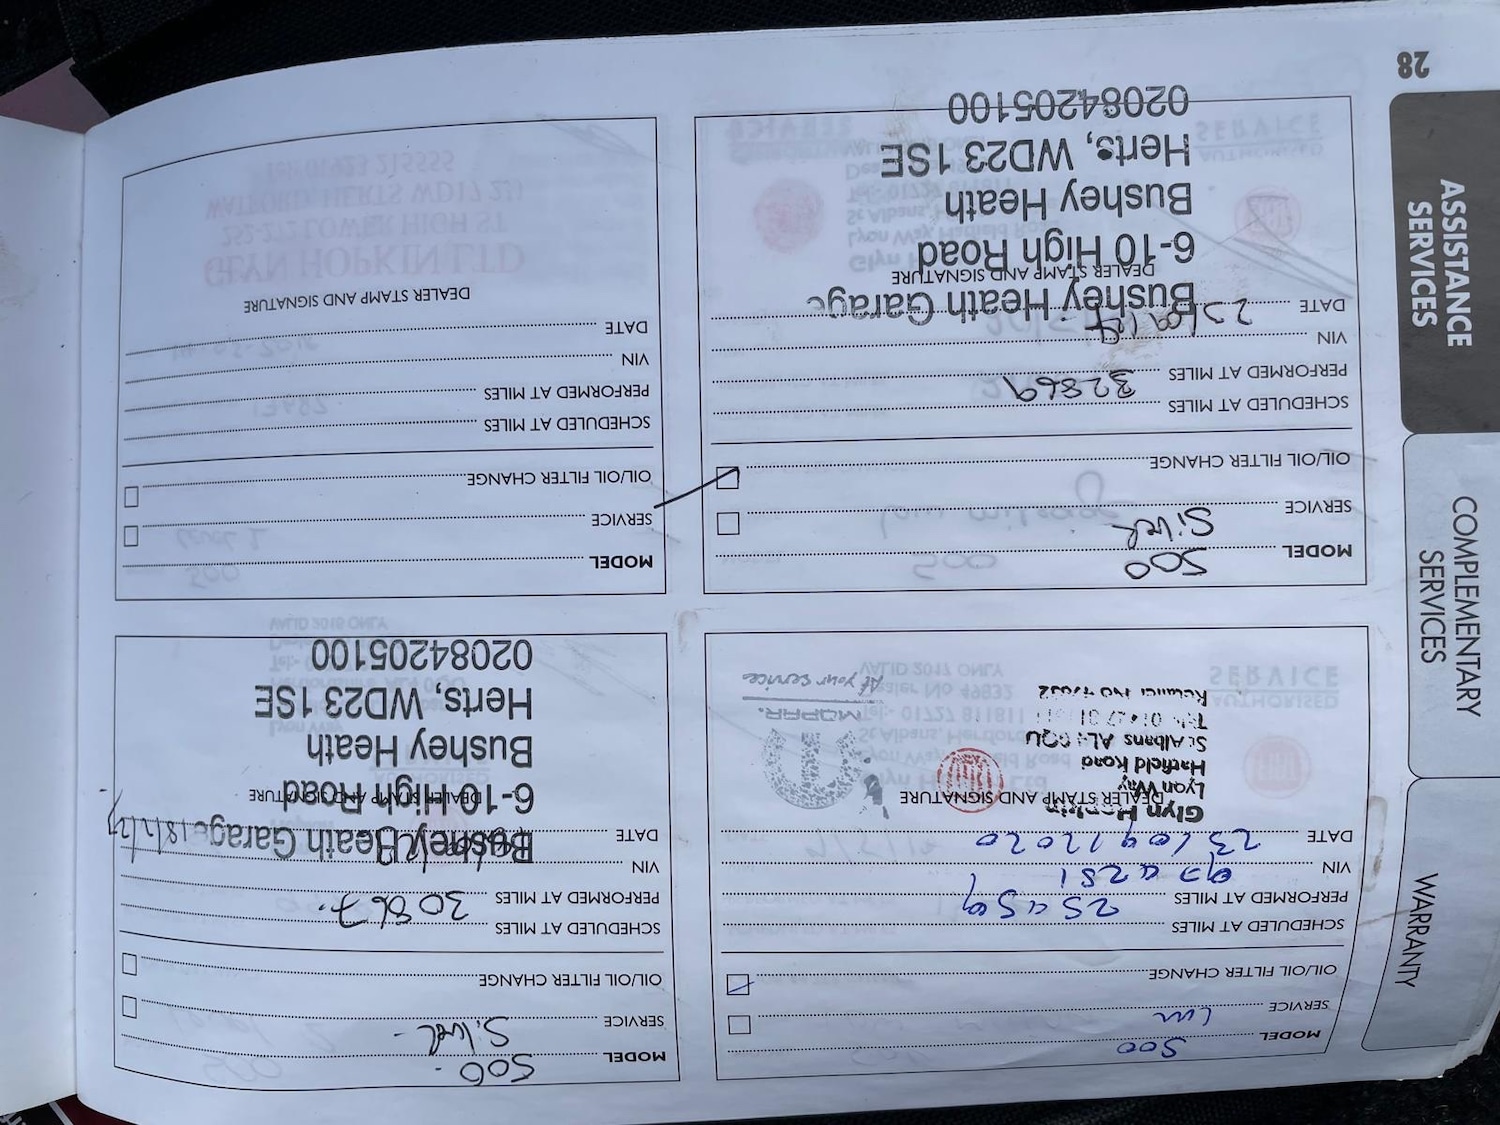 MODEL 500
SERVICE
OIL/OIL FILTER CHANGE
SCHEDULED AT MILES
PERFORMED AT MILES 25459
VIN
DATE 23/09/2020
DEALER STAMP AND SIGNATURE
Glyn Hopkin
Lyon Way
Hatfield Road
St Albans AL4 0QU
MOPAR.
At your service
MODEL 500
SERVICE Silver
OIL/OIL FILTER CHANGE
SCHEDULED AT MILES
PERFORMED AT MILES 30867
VIN
DATE
DEALER STAMP AND SIGNATURE
Bushey Heath Garage
6-10 High Road
Bushey Heath
Herts, WD23 1SE
02084205100
MODEL 500
SERVICE Silver
OIL/OIL FILTER CHANGE
SCHEDULED AT MILES
PERFORMED AT MILES 32869
VIN
DATE
DEALER STAMP AND SIGNATURE
Bushey Heath Garage
6-10 High Road
Bushey Heath
Herts, WD23 1SE
02084205100
MODEL
SERVICE
OIL/OIL FILTER CHANGE
SCHEDULED AT MILES
PERFORMED AT MILES
VIN
DATE
DEALER STAMP AND SIGNATURE
WARRANTY
COMPLEMENTARY
SERVICES
ASSISTANCE
SERVICES
28